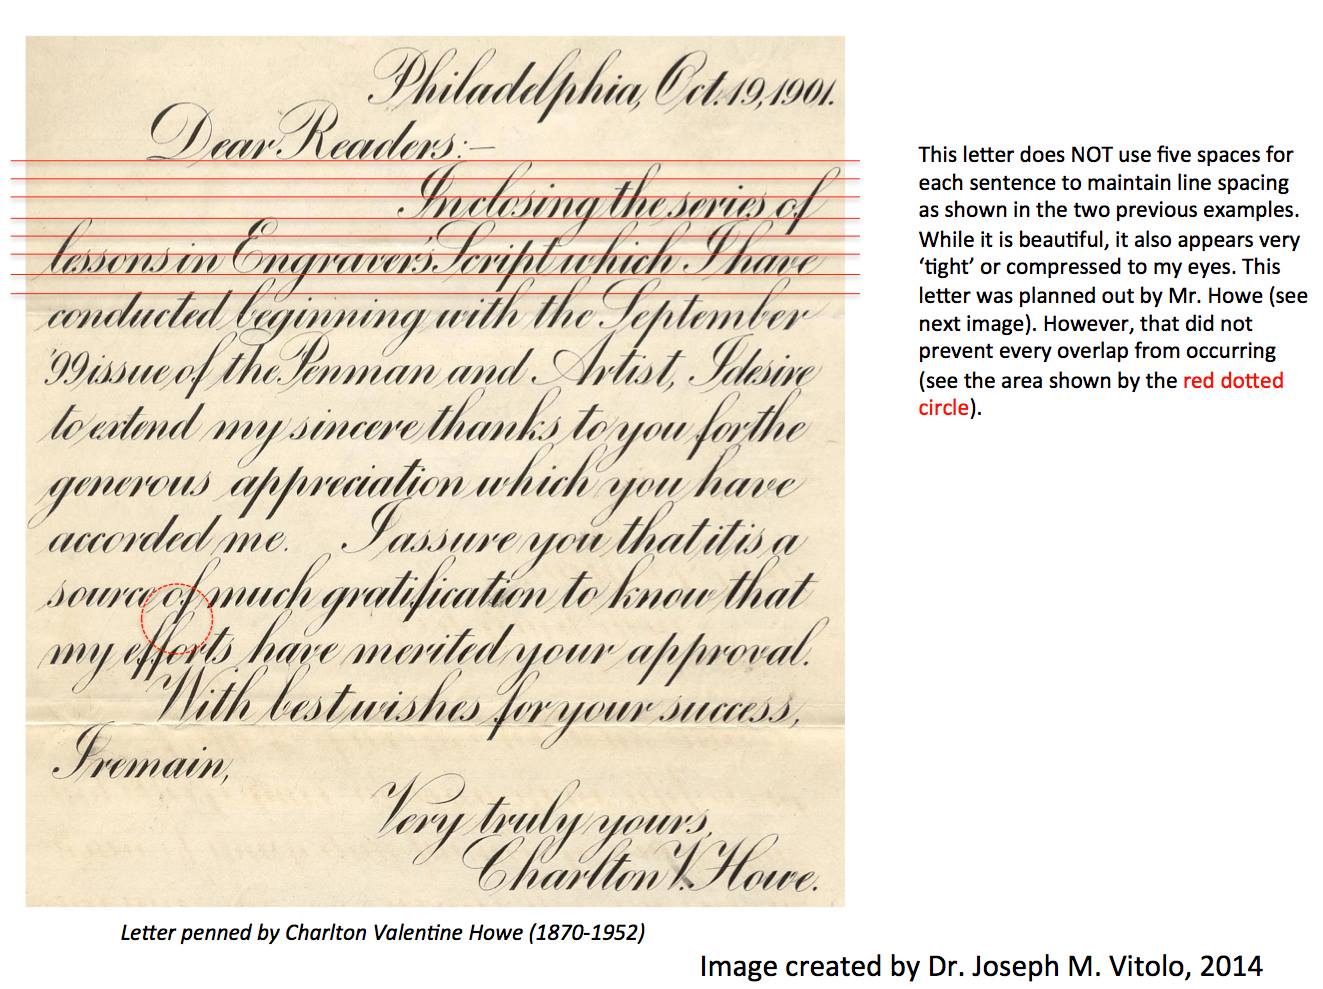 Philadelphia, Oct. 19, 1901.
Dear Readers:—
In closing the series of
lessons in Engraver's Script which I have
conducted beginning with the September
'99 issue of the Penman and Artist, I desire
to extend my sincere thanks to you for the
generous appreciation which you have
accorded me. I assure you that it is a
source of much gratification to know that
my efforts have merited your approval.
With best wishes for your success,
I remain,
Very truly yours,
Charlton V. Howe.
This letter does NOT use five spaces for
each sentence to maintain line spacing
as shown in the two previous examples.
While it is beautiful, it also appears very
‘tight’ or compressed to my eyes. This
letter was planned out by Mr. Howe (see
next image). However, that did not
prevent every overlap from occurring
(see the area shown by the red dotted
circle).
Letter penned by Charlton Valentine Howe (1870-1952)
Image created by Dr. Joseph M. Vitolo, 2014